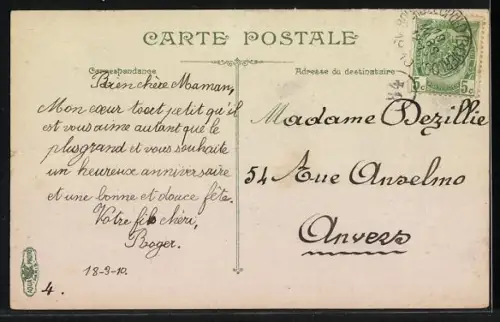 CARTE POSTALE
Correspondance
Adresse du destinataire
Bien chère Maman,
Mon cœur tout petit qu'il
est vous aime autant que le
plus grand et vous souhaite
un heureux anniversaire
et une bonne et douce fête.
Votre fils chéri,
Roger.
18-9-10.
4.
Madame Dezillie
54 Rue Anselmo
Anvers
5c 5c